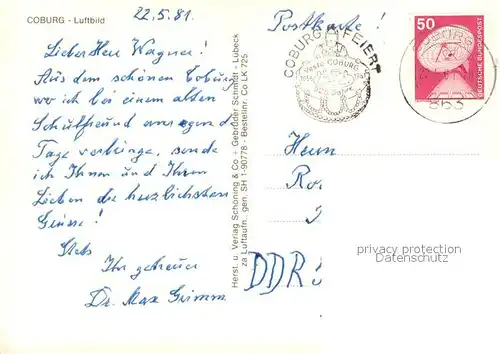 COBURG - Luftbild
22.5.81.
Lieber Herr Wagner!
Aus dem schönen Coburg
wo ich bei einem alten
Schulfreund
Tage verbringe, sende
ich Ihnen und Ihren
Lieben die herzlichsten
Grüsse!
Stets
Ihr getreuer
Dr. Max Grimm
Herst. u. Verlag Schöning & Co - Gebrüder Schmidt - Lübeck
za Luftaufn. gen. SH 1-90778 - Bestellnr. Co LK 725
Postkarte!
COBURG FEIERT
50
DEUTSCHE BUNDESPOST
863
Herrn
DDR!
privacy protection
Datenschutz